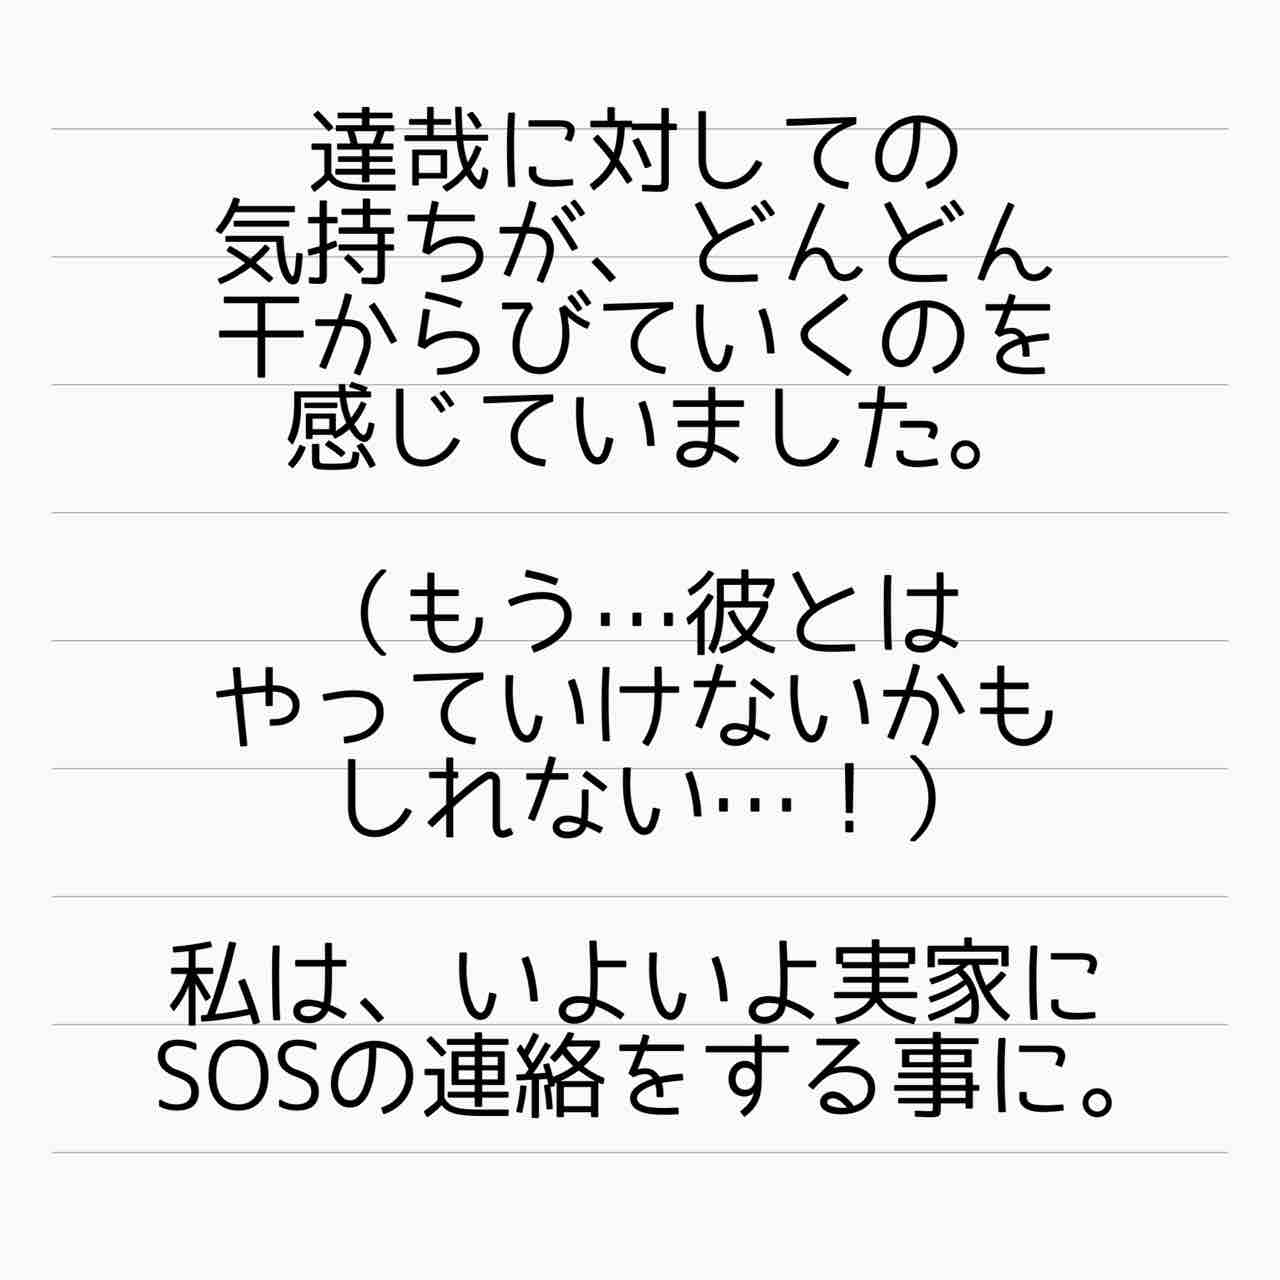 達哉に対しての
気持ちが、どんどん
干からびていくのを
感じていました。
（もう…彼とは
やっていけないかも
しれない…！）
私は、いよいよ実家に
SOSの連絡をする事に。